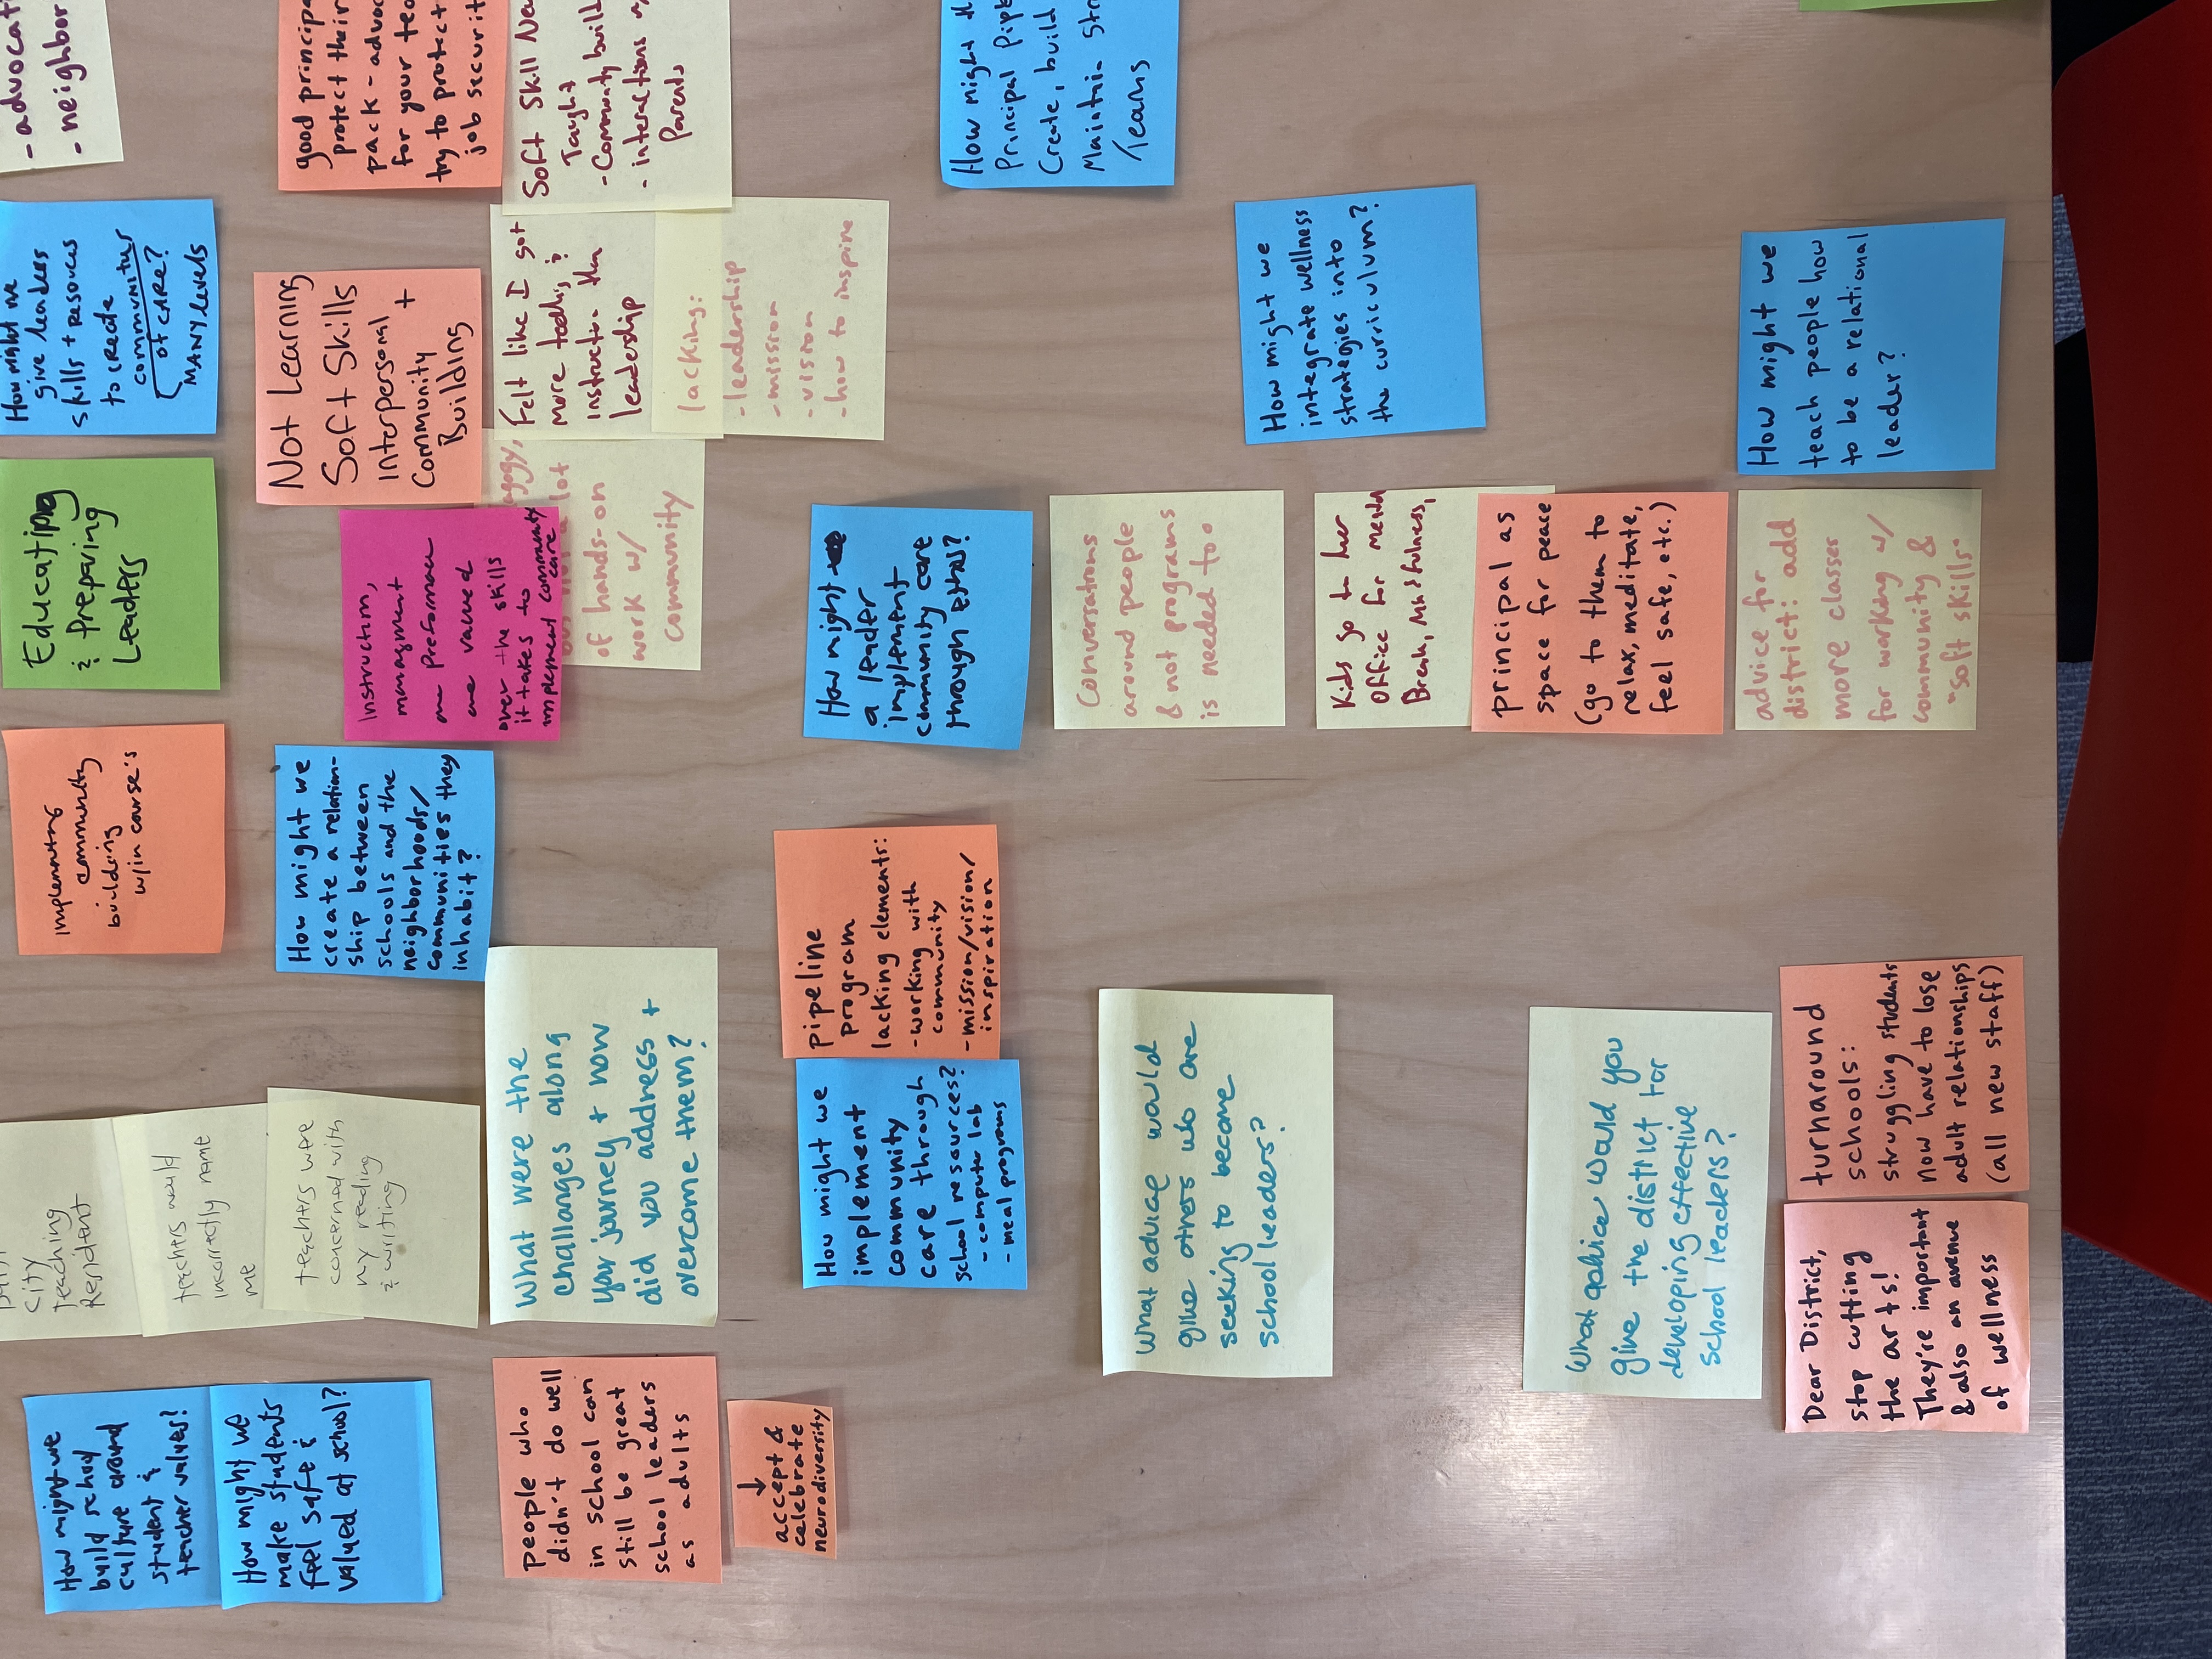 How might we
build school
culture around
student &
teacher values?
How might we
make students
feel safe &
valued at school?
City
teaching
Resident
teachers would
incorrectly name
me
teachers were
concerned with
my reading
& writing
Implementing
community
building
w/in course's
Educating
& Preparing
Leaders
How might we
give leaders
skills + resources
to create
communities
of CARE?
MANY levels
- advocati
- neighbor
How might we
create a relation-
ship between
schools and the
neighborhoods/
communities they
inhabit?
Not Learning
Soft Skills
Interpersonal +
Community
Building
good principa
protect their
pack - advoc
for your tea
try to protect
job securit
Instruction,
managment
are valued
over the skills
it takes to
implement community
care
people who
didn't do well
in school can
still be great
school leaders
as adults
↓
accept &
celebrate
neurodiversity
What were the
challanges along
your journey + how
did you address +
overcome them?
lot
of hands-on
work w/
community
Felt like I got
more tools, &
instruction than
leadership
Soft Skill Ne
Taught
- Community build
- interactions w/
Parents
lacking:
- leadership
- mission
- vision
- how to inspire
How might we
implement
community
care through
school resources?
- computer lab
- meal programs
pipeline
program
lacking elements:
- working with
community
- mission/vision/
inspiration
How might
a leader
implement
community care
through ethos?
How might th
Principal Pipe
Create, build
Maintain str
teams
What advice would
give others who are
seeking to become
school leaders?
Conversations
around people
& not programs
is needed too
How might we
integrate wellness
strategies into
the curriculum?
Kids go to her
office for mental
Break, Mindfulness,
principal as
space for peace
(go to them to
relax, meditate,
feel safe, etc.)
What advice would you
give the district for
developing effective
school leaders?
advice for
district: add
more classes
for working w/
community &
"soft skills"
How might we
teach people how
to be a relational
leader?
Dear District,
stop cutting
the arts!
They're important
& also an avenue
of wellness
turnaround
schools:
struggling students
now have to lose
adult relationships
(all new staff)